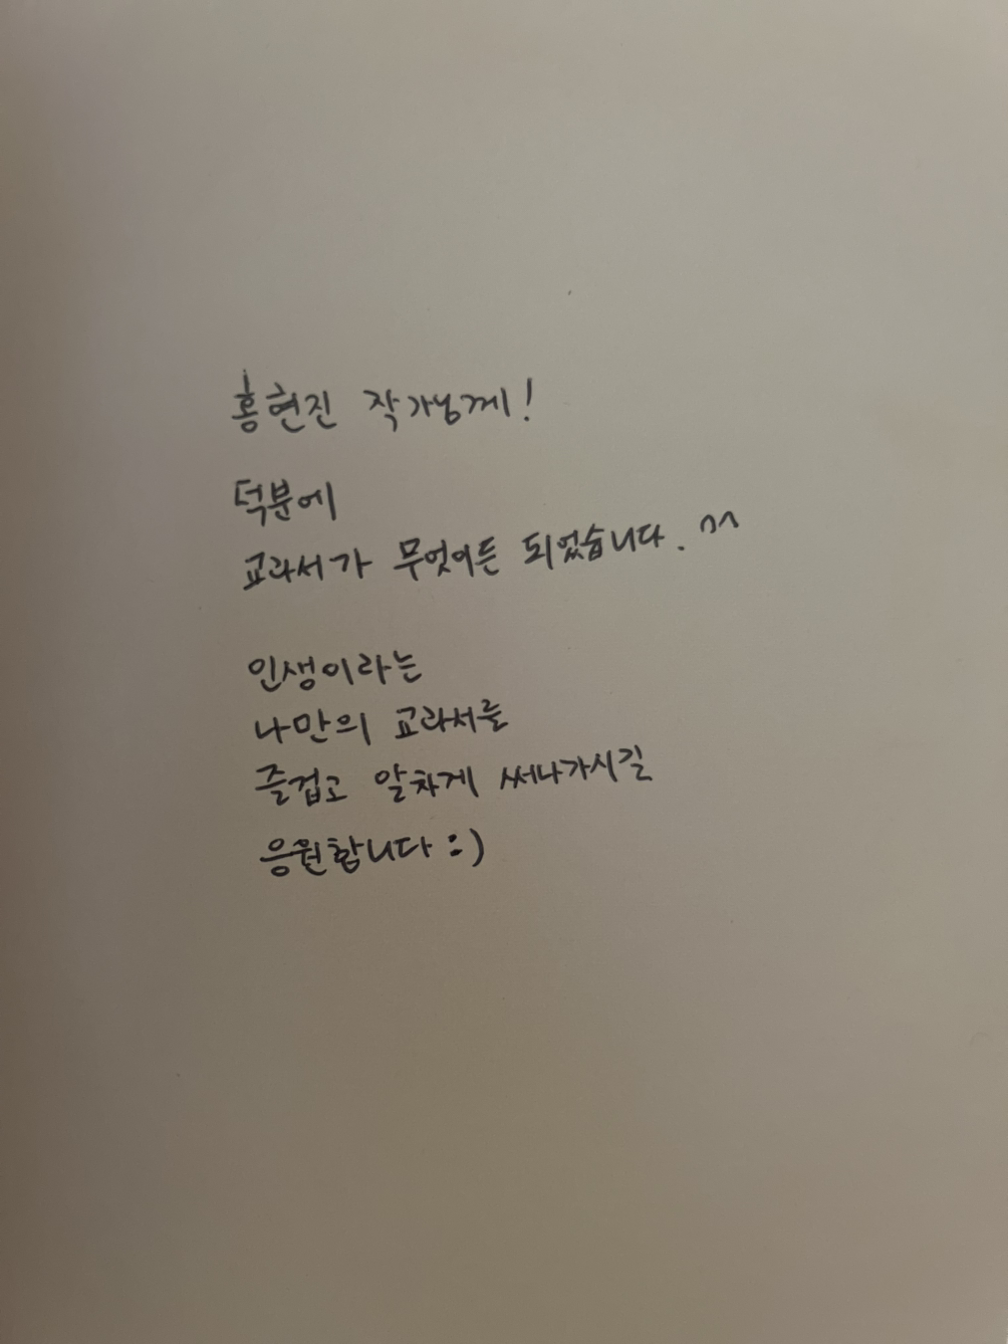 홍현진 작가님께!
덕분에
교과서가 무엇이든 되었습니다. ^^
인생이라는
나만의 교과서를
즐겁고 알차게 써나가시길
응원합니다 :)